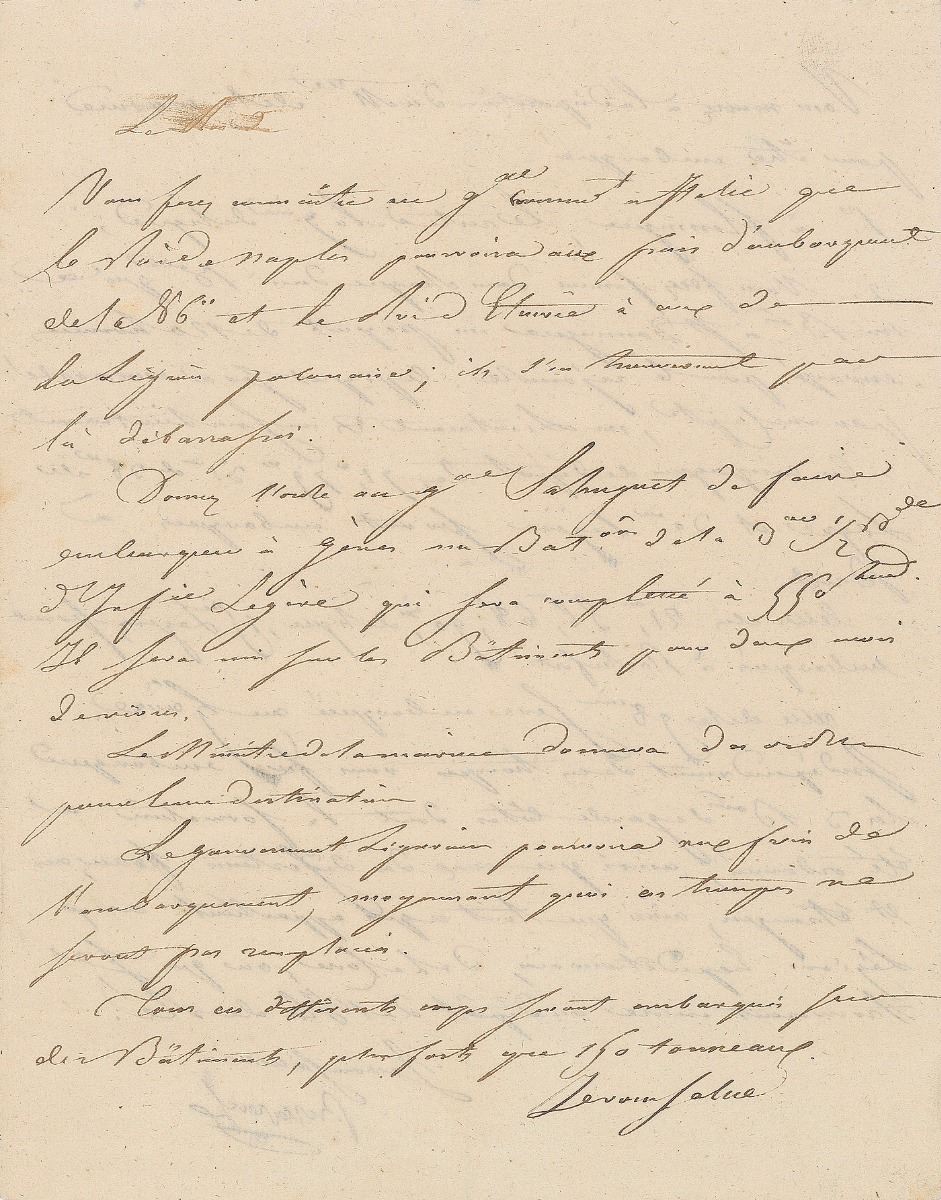 Le
Vous ferez connaître au gral Commt en Italie que
Le Roi de Naples pourvoira aux frais d'embarquement
de la 86e et Le Roi d'Etrurie à ceux de
La Légion polonaise; ils s'en trouveront par
là débarrassés.
Donnez l'ordre au gral Sahuguet de faire
embarquer à Gênes un Baton de la 3me 1/2 Bde
d'Infrie Légère qui sera completté à 550 hes.
Il sera mis sur les Bâtiments pour deux mois
de vivres.
Le Ministre de la marine donnera des ordres
pour leur destination.
Le gouvernement Ligurien pourvoira aux frais de
l'embarquement, moyennant quoi ces troupes ne
seront pas remplacées.
Tous ces différents corps seront embarqués sur
des Bâtiments, plus forts que 150 tonneaux.
Je vous salue